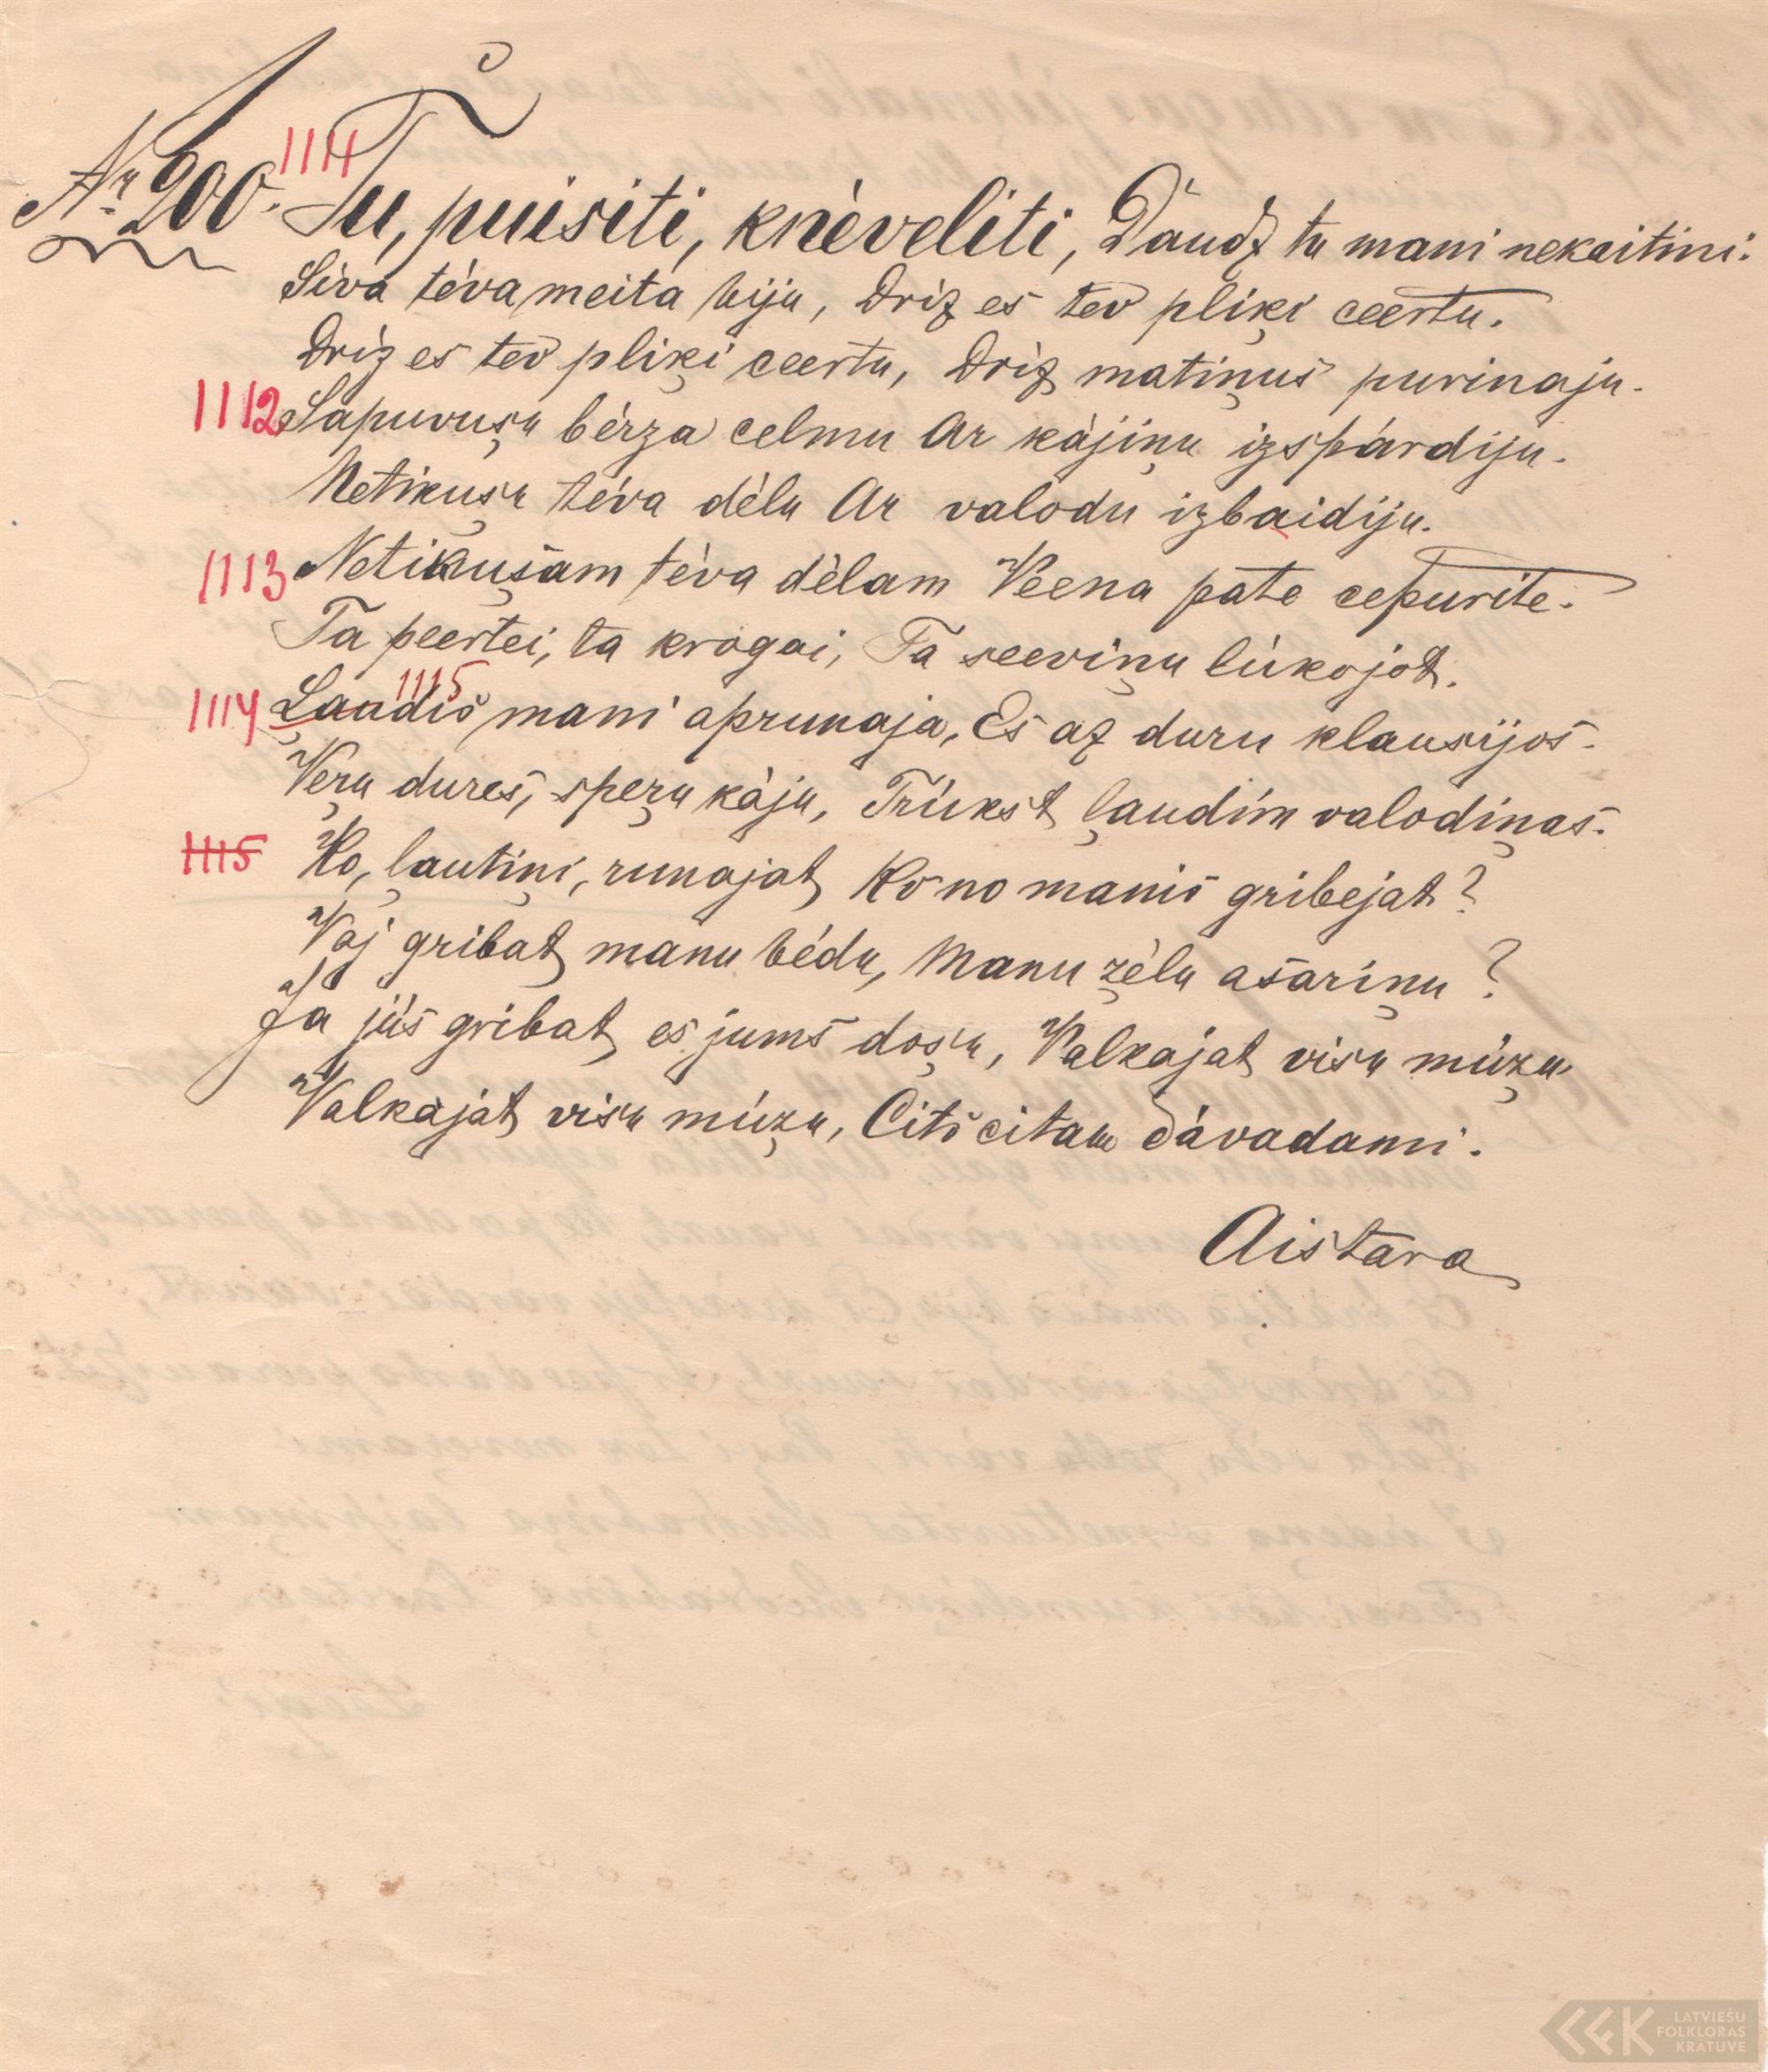 1111
Nr 200. Tu, puisiti, knèveliti, Daudz tu mani nekaitini:
Sìva tèva meita biju, Drìz es tev pliķi ceertu.
Drìz es tev pliķi ceertu, Drìz matiņus purinaju.
1112 Sapuvuşu bèrza celmu Ar kàjiņu izspàrdiju.
Netikuşu tèva dèlu Ar valodu izbaidiju.
1113 Netikuşam tèva dèlam Veena pate cepurite.
Ta peertei, ta krogai, Ta seeviņu lùkojot.
1115
1114 Ļaudis mani aprunaja, Es az duru klausijos.
Veŗu dures, speŗu kàju, Trùkst ļaudìm valodiņas.
1115 Ko, ļautiņi, runajat, Ko no manis gribejat?
Vaj gribat manu bèdu, Manu zèlu asariņu?
Ja jùs gribat, es jums doşu, Valkajat visu mùzu.
Valkajat visu mùzu, Cits citam dàvadami.
Aistara
LATVIEŠU
FOLKLORAS
KRĀTUVE